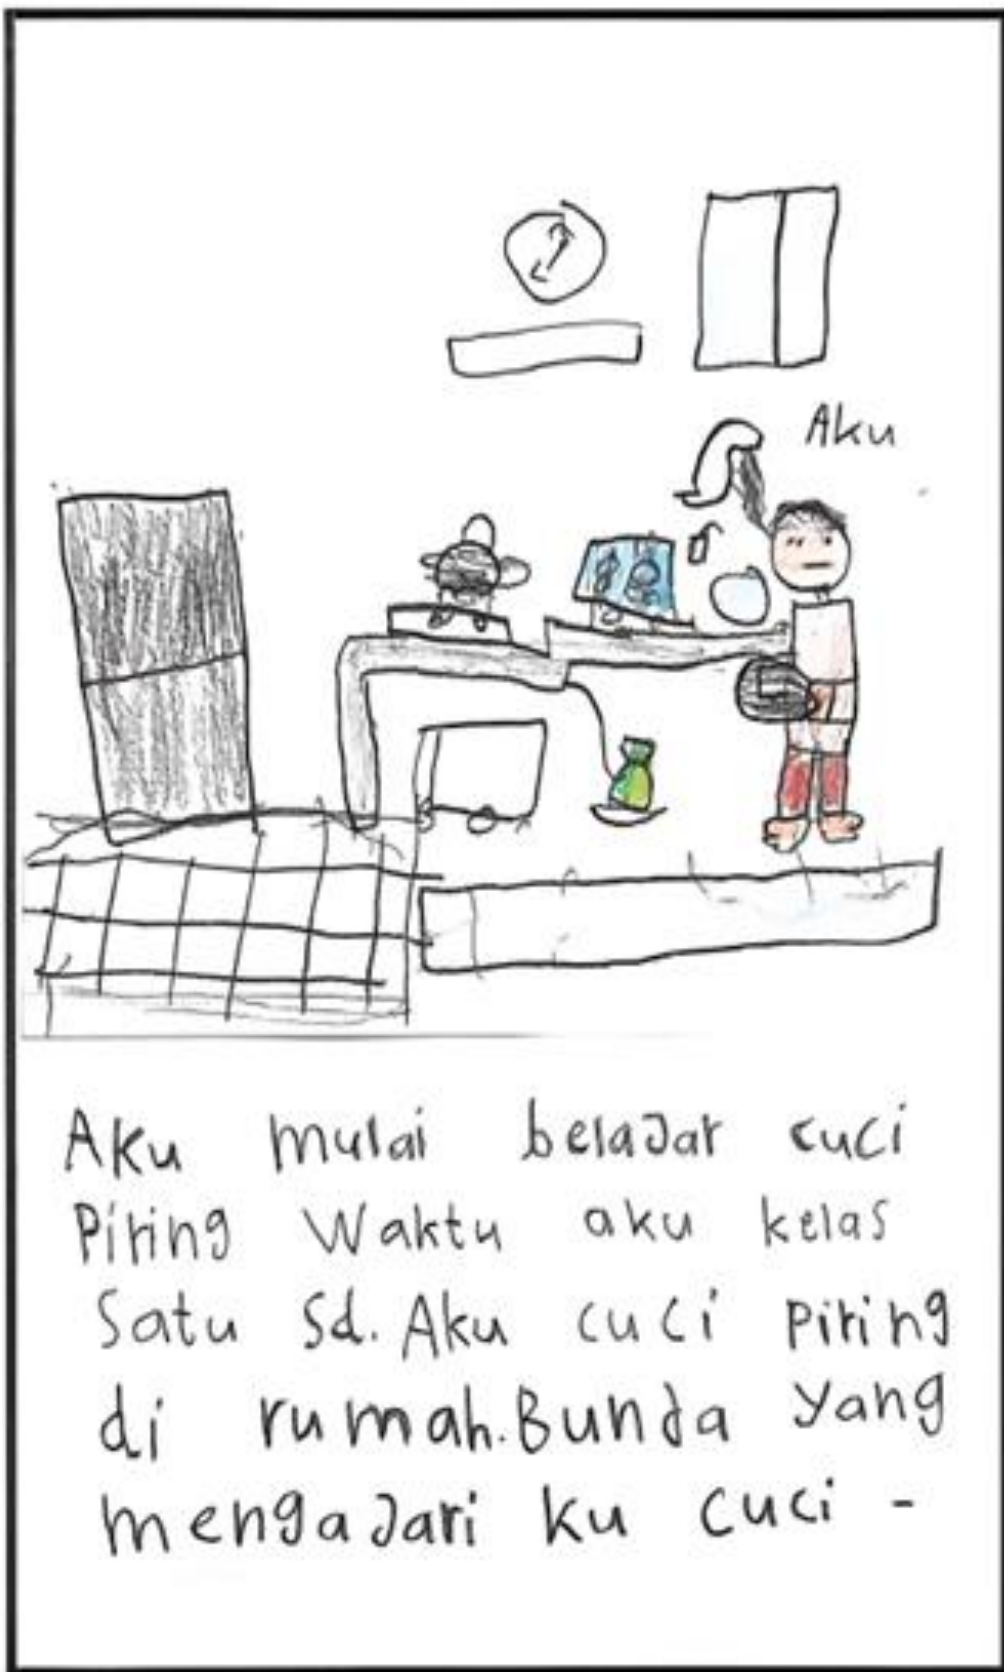 Aku
Aku mulai belajar cuci
Piring Waktu aku kelas
Satu Sd. Aku cuci Piring
di rumah. Bunda yang
mengajari ku cuci -